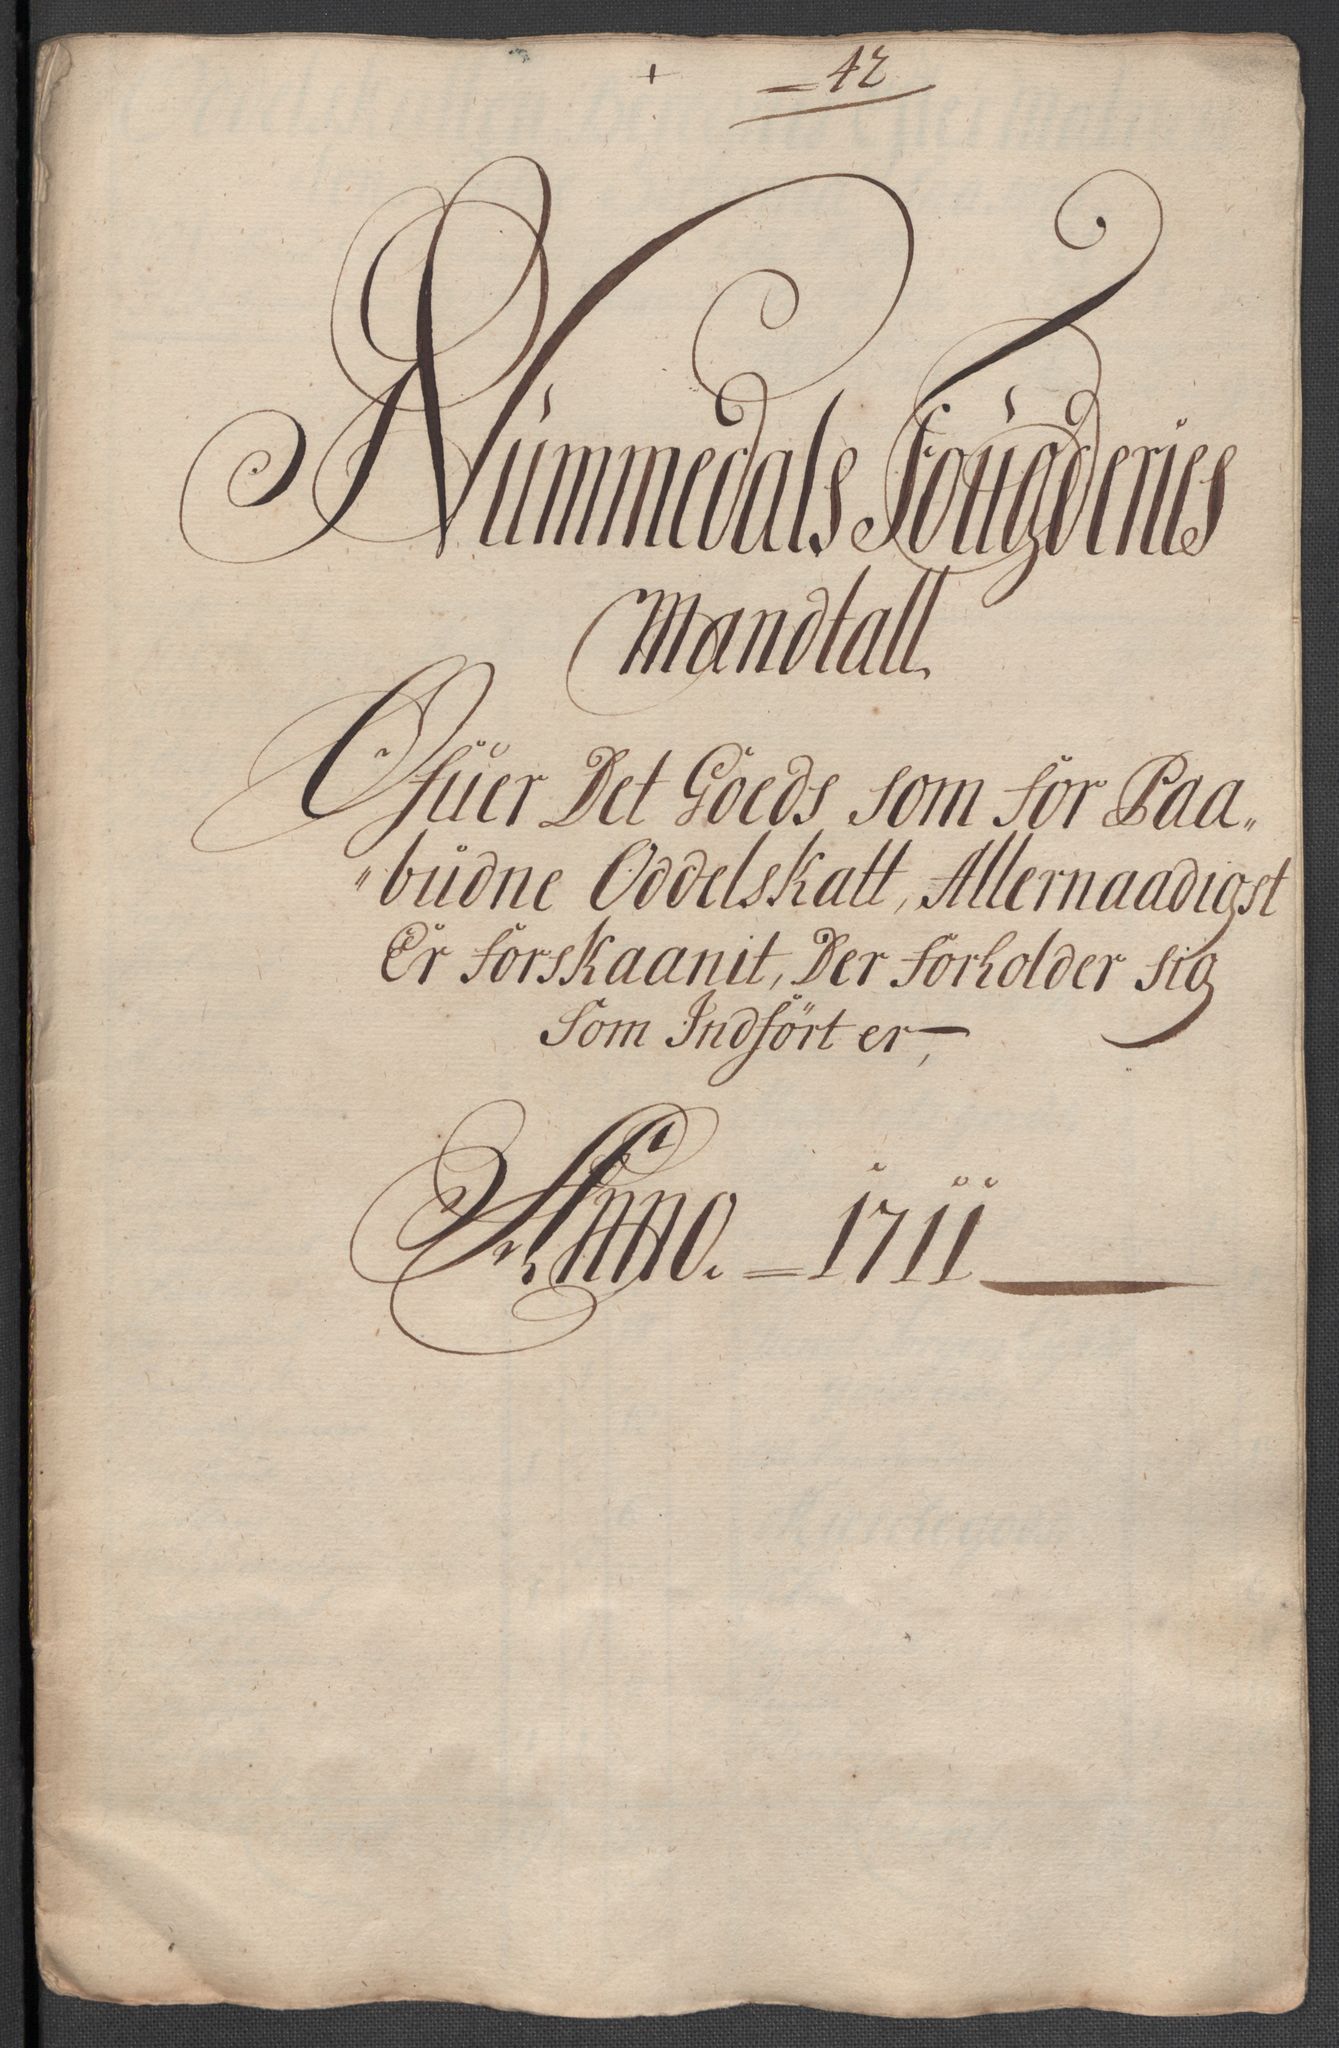 42
Nummedals Fougderies
Mandtall
Ofuer Det Goeds som for Paa„
„budne Oddelskatt, Allernaadigst
Er forskaanit, Der forholder sig
Som Indfört er,
Anno. 1711